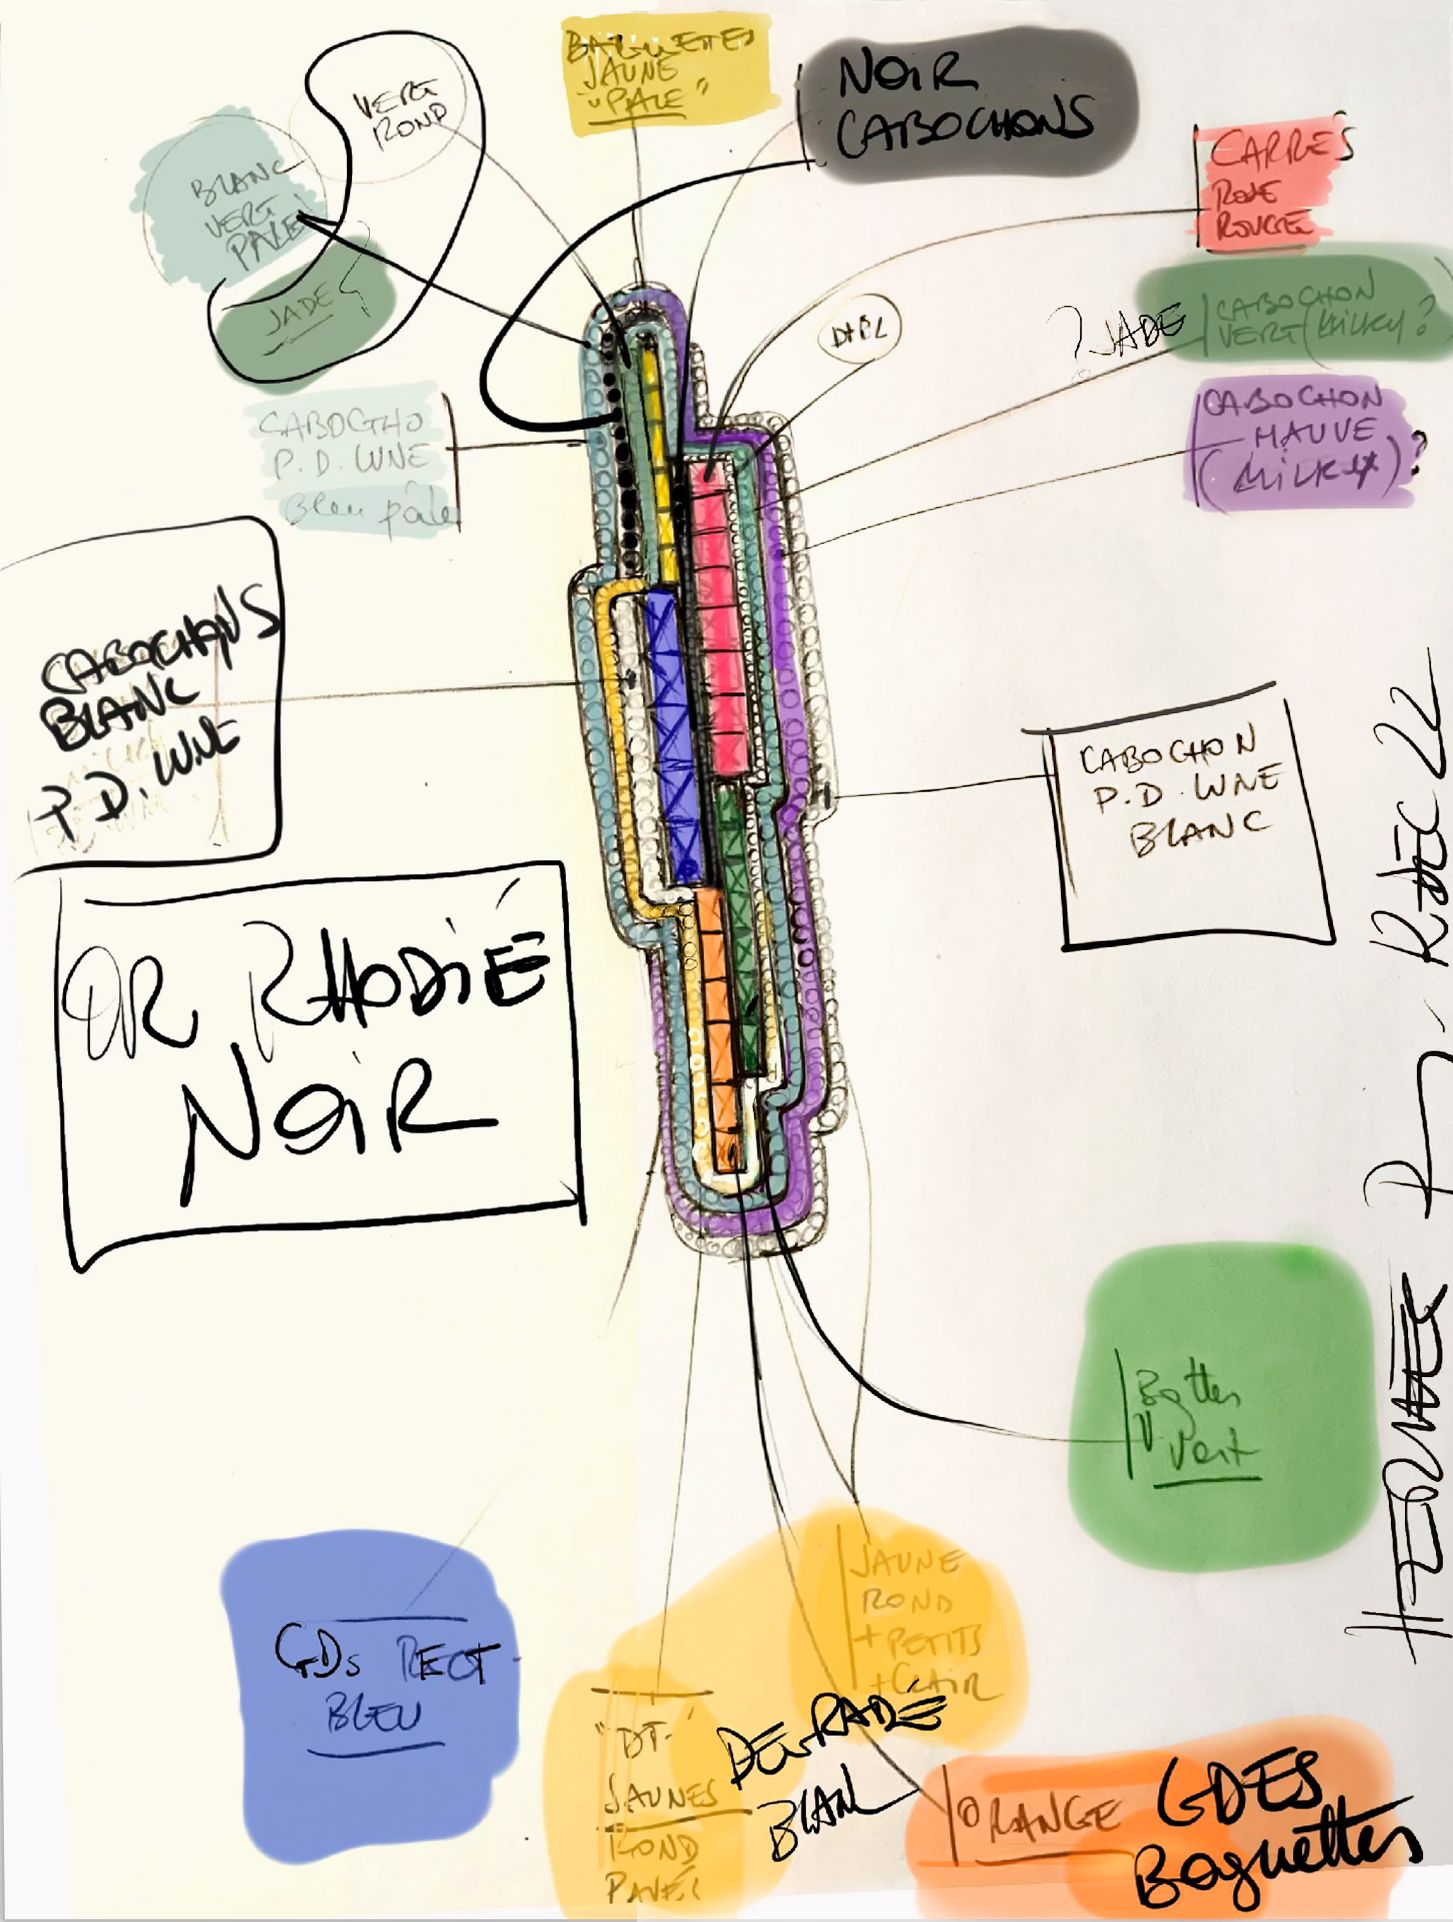 BAGUETTES
JAUNE
"PALE"
NOIR
CABOCHONS
VERT
ROND
BLANC
VERT
PALE
JADE
CARRÉS
ROSE
ROUGE
? JADE
CABOCHON
VERT (MILKY?
CABOCHON
MAUVE
(MILKY)?
CABOCHO
P.D. LUNE
Bleu pâle
CABOCHONS
BLANC
P.D. LUNE
CABOCHON
P.D. LUNE
BLANC
OR RHODIÉ
NOIR
Bgttes
Vert
GDS RECT
BLEU
JAUNE
ROND
+ PETITS
+ CLAIR
"DT."
JAUNES
ROND
PAVÉS
DEGRADÉ
BLANC
ORANGE GDES
Baguettes